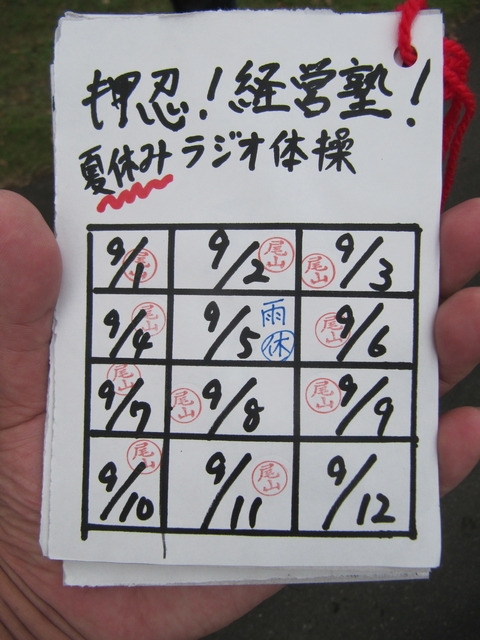 押忍!経営塾!
夏休みラジオ体操
9/1 尾山
9/2 尾山
9/3 尾山
9/4 尾山
9/5 雨 休
9/6 尾山
9/7 尾山
9/8 尾山
9/9 尾山
9/10 尾山
9/11 尾山
9/12